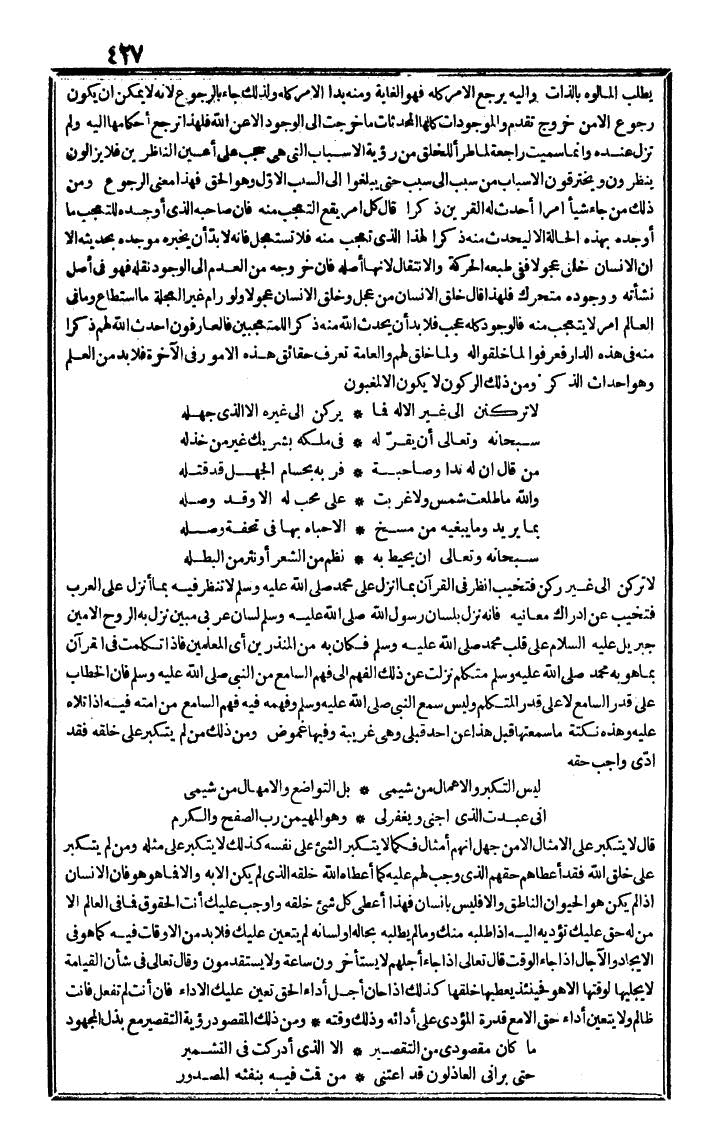 ٤٢٧
يطلب المالوه بالذات واليه يرجع الامر كله فهو الغاية ومنه بدا الامر كله ولذلك جاء بالرجوع لانه لا يمكن ان يكون
رجوع الا من خروج تقدم والموجودات كلها المحدثات ما خرجت الى الوجود الا عن الله فلهذا ترجع أحكامها اليه ولم
تزل عنده وانما سميت راجعة لما طرأ للخلق من رؤية الاسباب التى هى حجب على أعين الناظرين فلا يزالون
ينظرون ويخترقون الاسباب من سبب الى سبب حتى يبلغوا الى السبب الاوّل وهو الحق فهذا معنى الرجوع ومن
ذلك من جاء شيأ امرا أحدث له القرين ذكرا قال كل امر يقع التعجب منه فان صاحبه الذى أوجده للتعجب ما
أوجده بهذه الحالة الا ليحدث منه ذكرا لهذا الذى تعجب منه فلا تستعجل فانه لابدّ أن يخبره موجده بحديثه الا
ان الانسان خلق عجولا ففى طبعه الحركة والانتقال لانها أصله فان خروجه من العدم الى الوجود نقله فهو فى أصل
نشأته ووجوده متحرك فلهذا قال خلق الانسان من عجل وخلق الانسان عجولا ولو رام غير العجلة ما استطاع وما فى
العالم امر لا يتعجب منه فالوجود كله عجب فلا بد أن يحدث الله منه ذكرا للمتعجبين فالعارفون احدث الله لهم ذكرا
منه فى هذه الدار فعرفوا لما خلقوا له ولما خلق لهم والعامة تعرف حقائق هذه الامور فى الآخرة فلا بد من العلم
وهو احداث الذكر ومن ذلك الركون لا يكون الا لمغبون
لا تركنن الى غير الاله فما * يركن الى غيره الا الذى جهله
سبحانه وتعالى أن يقرّ له * فى ملكه بشريك غير من خذله
من قال ان له ندا وصاحبة * فربه بحسام الجهل قد قتله
والله ما طلعت شمس ولا غربت * على محب له الا وقد وصله
بما يريد وما يبغيه من مسخ * الا حباه بها فى تحفة وصله
سبحانه وتعالى ان يحيط به * نظم من الشعر أو نثر من البطله
لا تركن الى غير ركن فتخيب انظر فى القرآن بما انزل على محمد صلى الله عليه وسلم لا تنظر فيه بما أنزل على العرب
فتخيب عن ادراك معانيه فانه نزل بلسان رسول الله صلى الله عليه وسلم لسان عربى مبين نزل به الروح الامين
جبريل عليه السلام على قلب محمد صلى الله عليه وسلم فكان به من المنذرين أى المعلمين فاذا تكلمت فى القرآن
بما هو به محمد صلى الله عليه وسلم متكلم نزلت عن ذلك الفهم الى فهم السامع من النبى صلى الله عليه وسلم فان الخطاب
على قدر السامع لا على قدر المتكلم وليس سمع النبى صلى الله عليه وسلم وفهمه فيه فهم السامع من امته فيه اذا تلاه
عليه وهذه نكتة ما سمعتها قبل هذا عن احد قبلى وهى غريبة وفيها غموض ومن ذلك من لم يتكبر على خلقه فقد
ادّى واجب حقه
ليس التكبر والاهمال من شيمى * بل التواضع والامهال من شيمى
انى عبدت الذى اجنى ويغفر لى * وهو المهيمن رب الصفح والكرم
قال لا يتكبر على الامثال الا من جهل انهم أمثال فكما لا يتكبر الشئ على نفسه كذلك لا يتكبر على مثله ومن لم يتكبر
على خلق الله فقد أعطاهم حقهم الذى وجب لهم عليه كما أعطاه الله خلقه الذى لم يكن الا به والا فما هو هو فان الانسان
اذا لم يكن هو الحيوان الناطق والا فليس بانسان فهذا أعطى كل شئ خلقه واوجب عليك أنت الحقوق فما فى العالم الا
من له حق عليك تؤديه اليه اذا طلبه منك وما لم يطلبه بحاله او لسانه لم يتعين عليك فلابد من الاوقات فيه كما هو فى
الايجاد والآجال اذا جاء الوقت قال تعالى اذا جاء أجلهم لا يستأخرون ساعة ولا يستقدمون وقال تعالى فى شأن القيامة
لا يجليها لوقتها الا هو فحينئذ يعطيها خلقها كذلك اذا حان أجل أداء الحق تعين عليك الاداء فان أنت لم تفعل فانت
ظالم ولا يتعين أداء حق الا مع قدرة المؤدى على أدائه وذلك وقته * ومن ذلك المقصود رؤية التقصير مع بذل المجهود
ما كان مقصودى من التقصير * الا الذى أدركت فى التشمير
حتى يرانى العاذلون قد اعتنى * من قت فيه بنفثه المصدور